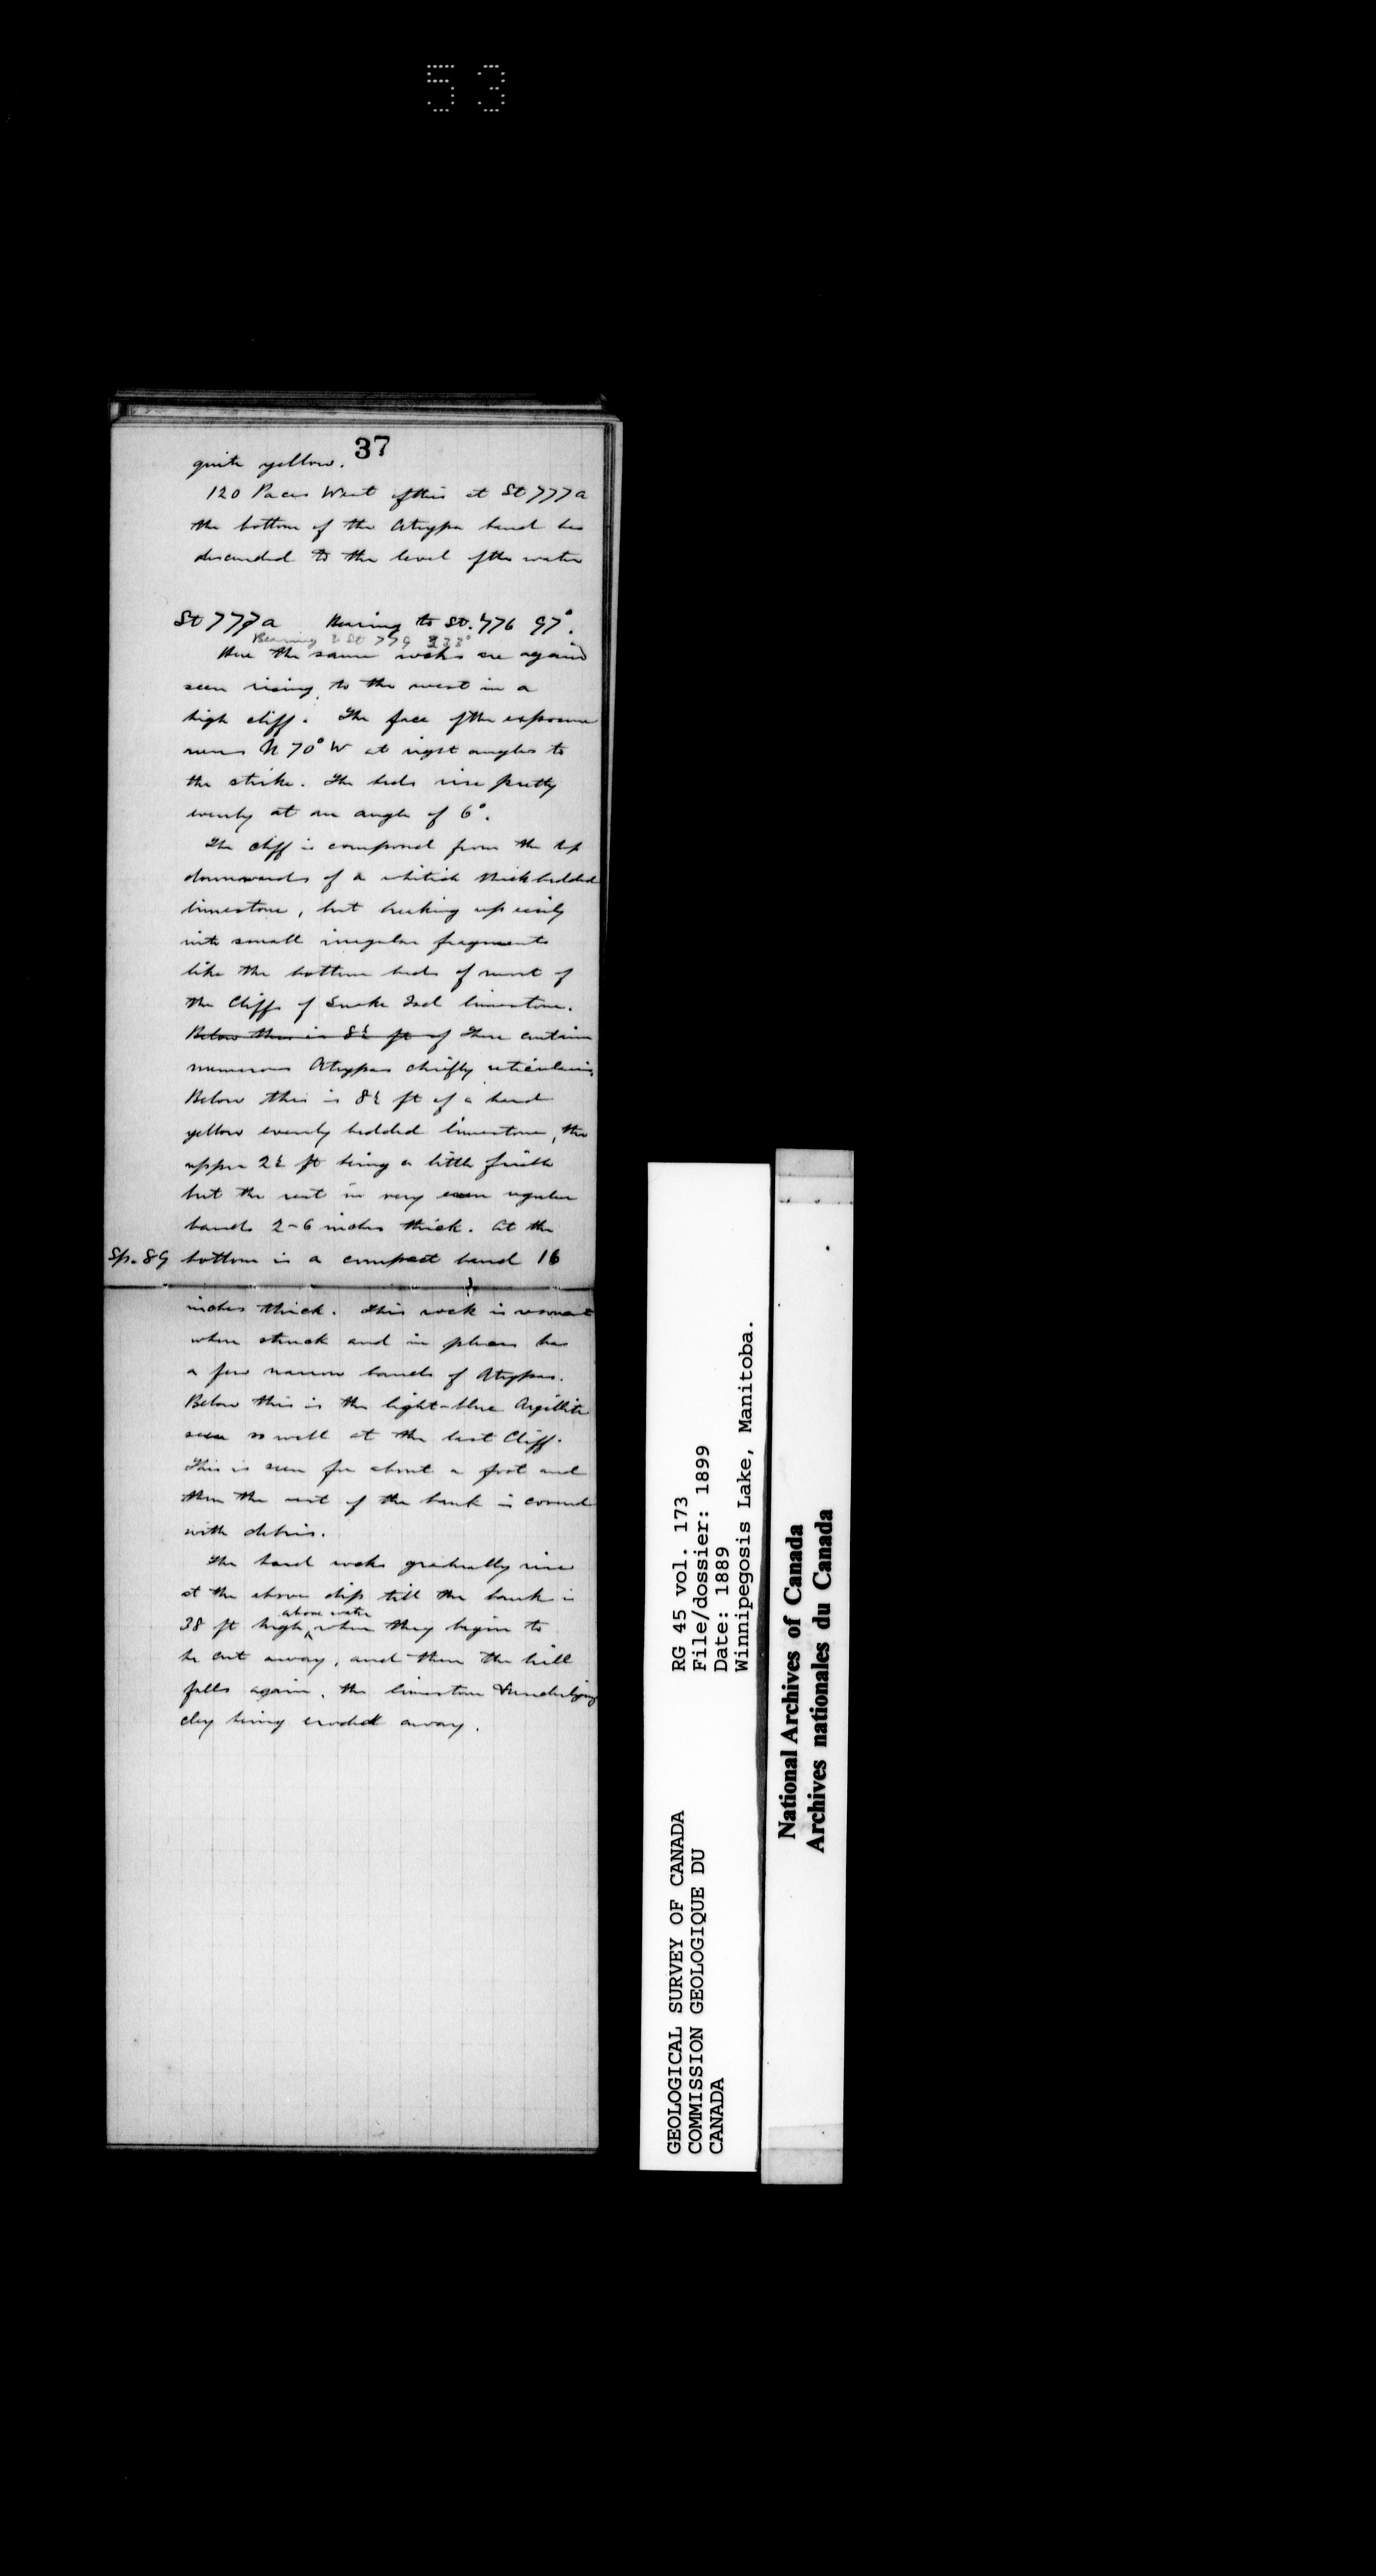 53
37
quite yellow.
120 Paces West of this at St 777a
the bottom of the Atrypa band has
descended to the level of the water
St 777a Bearing to St. 776 97°.
Bearing to St 779 233°
Here the same rocks are again
seen rising to the west in a
high cliff. The face of the exposure
runs N 70° W at right angles to
the strike. The beds rise pretty
evenly at an angle of 6°.
The cliff is composed from the top
downwards of a whitish thick bedded
limestone, but breaking up easily
into small irregular fragments
like the bottom beds of most of
the Cliffs of Snake Isd limestone.
Below this is 8½ ft of These contain
numerous Atrypas chiefly reticularis.
Below this is 8½ ft of a hard
yellow evenly bedded limestone, the
upper 2½ ft being a little friable
but the rest in very even regular
bands 2-6 inches thick. At the
Sp. 89 bottom is a compact band 16
inches thick. This rock is resonant
when struck and in places has
a few narrow bands of Atrypas.
Below this is the light-blue Argillite
seen so well at the last Cliff.
This is seen for about a foot and
then the rest of the bank is covered
with debris.
The hard rocks gradually rise
at the above dip till the bank is
above water
38 ft high, when they begin to
be cut away, and then the hill
falls again, the limestone & underlying
clay being eroded away.
GEOLOGICAL SURVEY OF CANADA
COMMISSION GEOLOGIQUE DU
CANADA
RG 45 vol. 173
File/dossier: 1899
Date: 1889
Winnipegosis Lake, Manitoba.
National Archives of Canada
Archives nationales du Canada